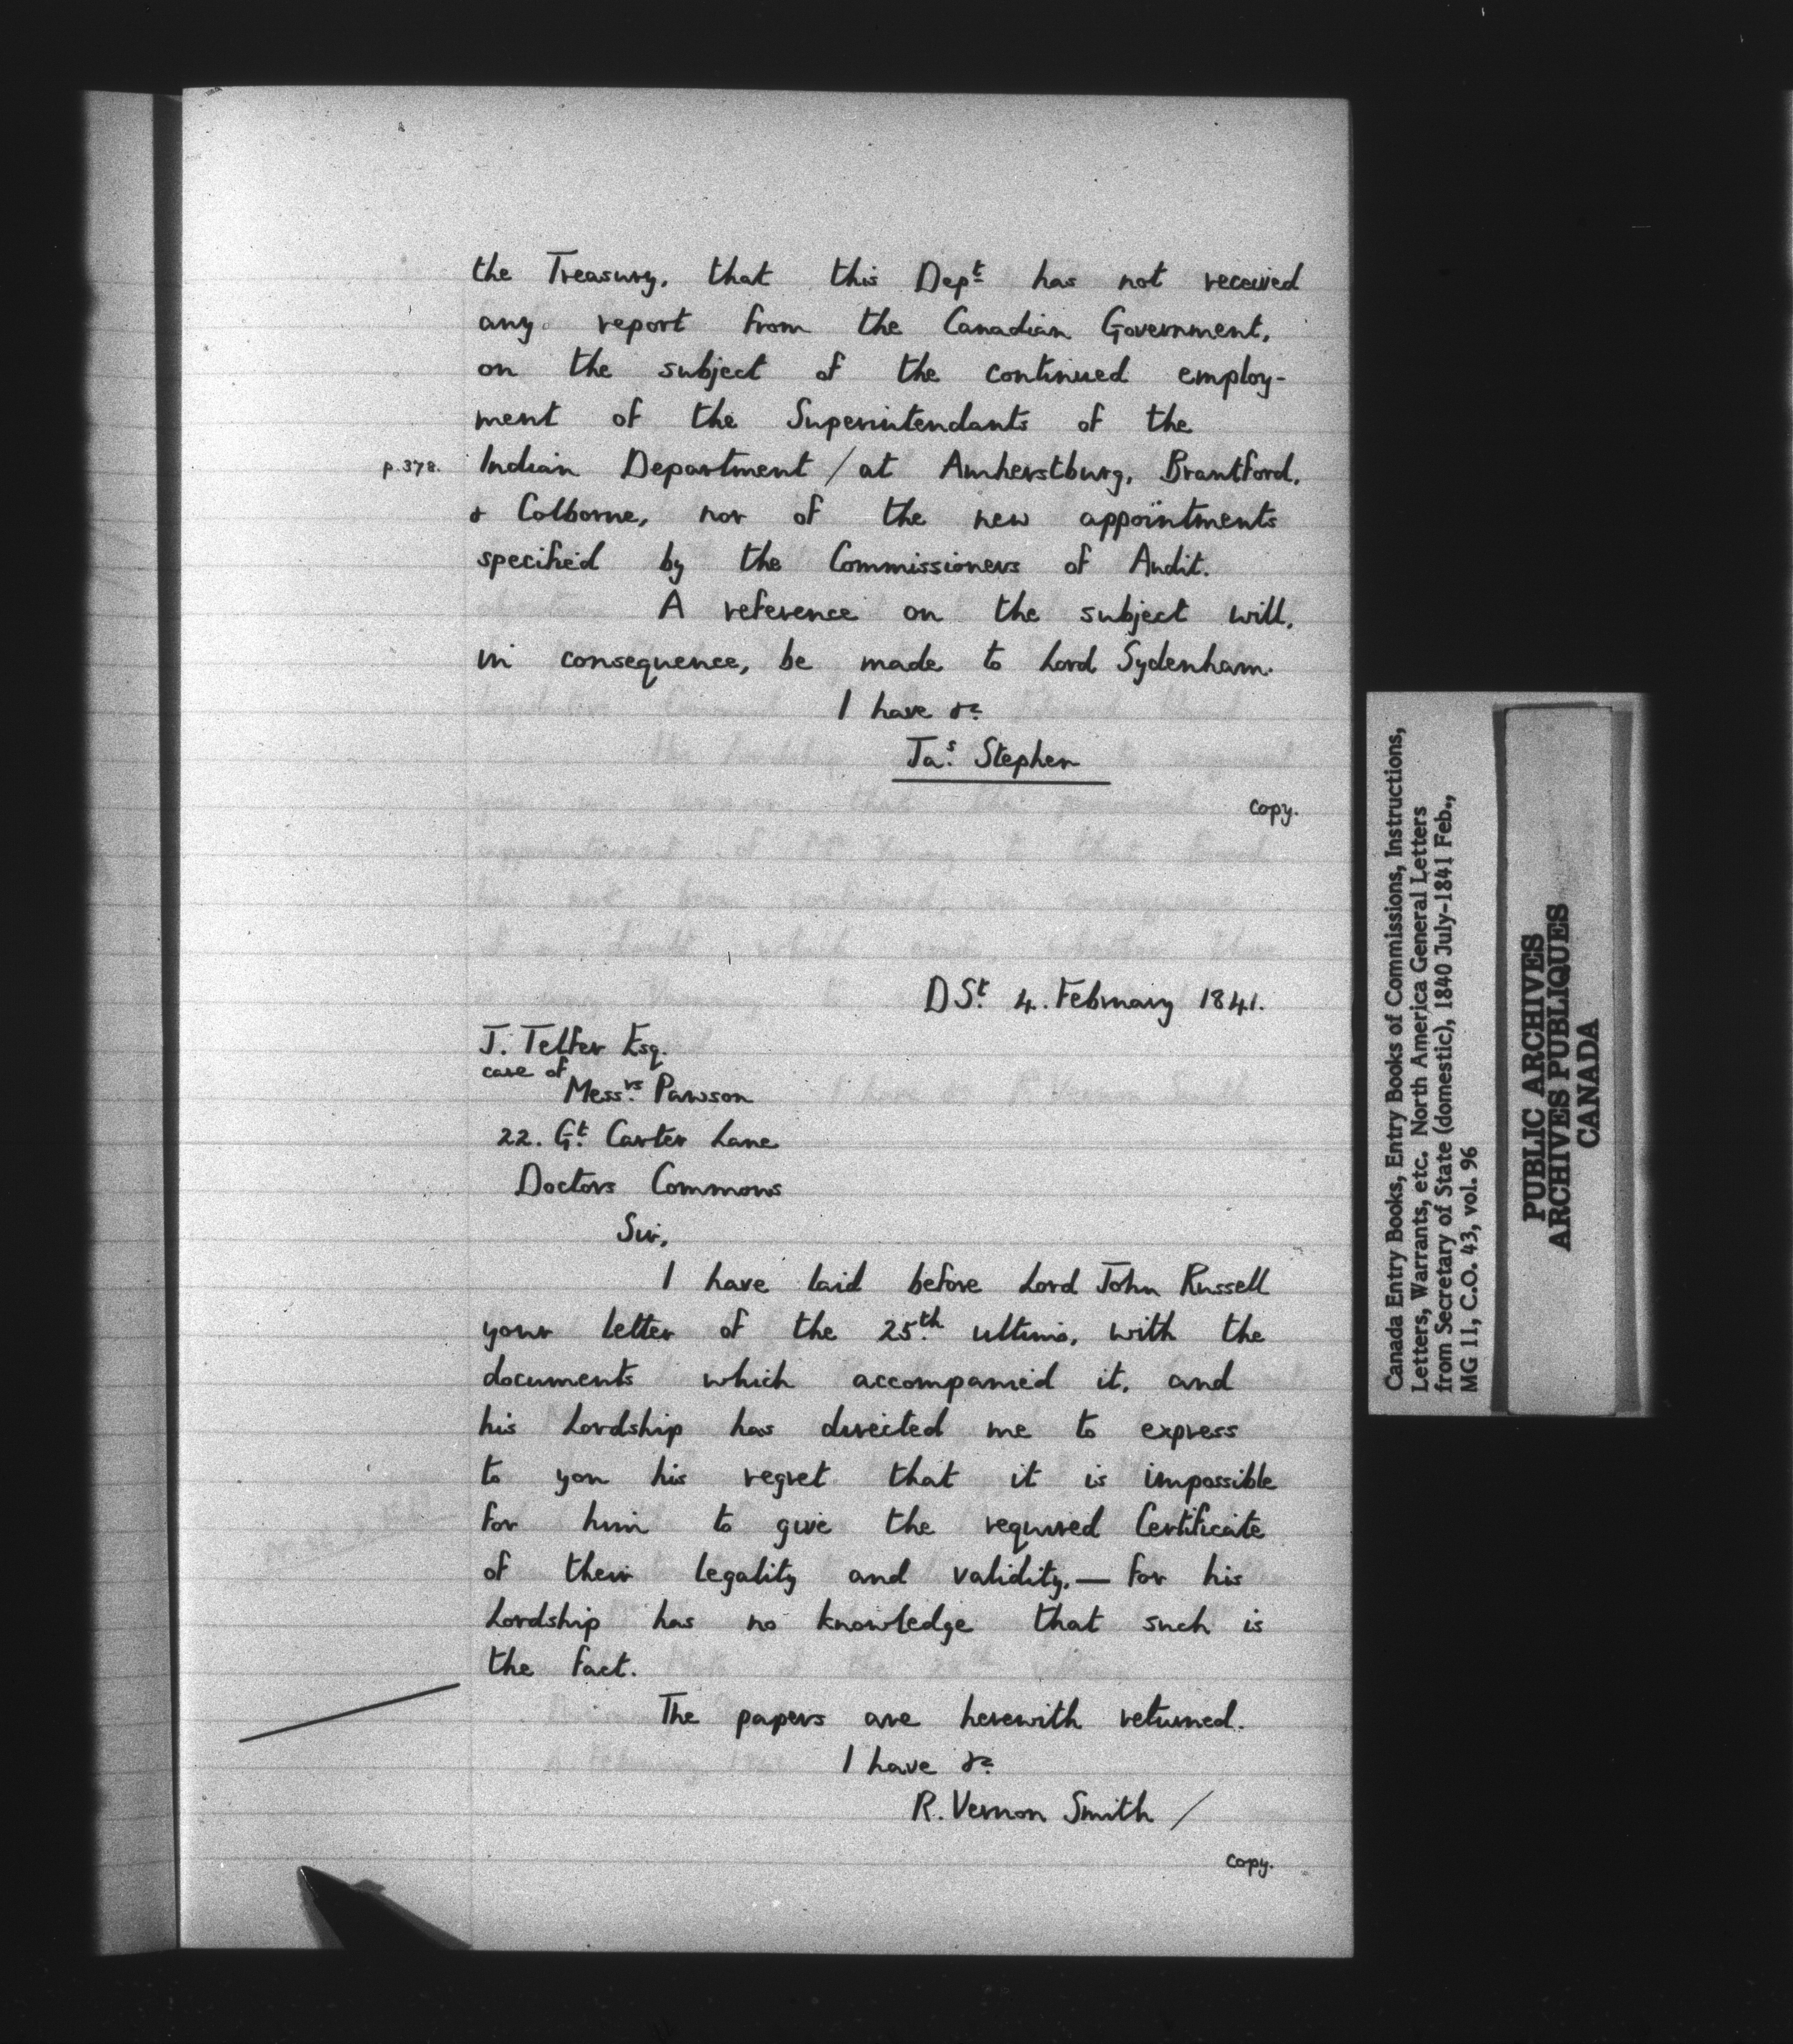 the Treasury, that this Dept has not received
any report from the Canadian Government,
on the subject of the continued employ-
ment of the Superintendants of the
p.378. Indian Department / at Amherstburg, Brantford,
& Colborne, nor of the new appointments
specified by the Commissioners of Audit.
A reference on the subject will,
in consequence, be made to Lord Sydenham.
I have &c
Jas. Stephen
copy.
D St. 4. February 1841.
J. Telfer Esq.
care of
Messrs. Pawson
22. Gt. Carter Lane
Doctors Commons
Sir,
I have laid before Lord John Russell
your letter of the 25th. ultimo, with the
documents which accompanied it, and
his Lordship has directed me to express
to you his regret that it is impossible
for him to give the required Certificate
of their legality and validity,— for his
Lordship has no knowledge that such is
the fact.
The papers are herewith returned.
I have &c
R. Vernon Smith /
copy.
Canada Entry Books, Entry Books of Commissions, Instructions,
Letters, Warrants, etc. North America General Letters
from Secretary of State (domestic), 1840 July-1841 Feb.,
MG 11, C.O. 43, vol. 96
PUBLIC ARCHIVES
ARCHIVES PUBLIQUES
CANADA